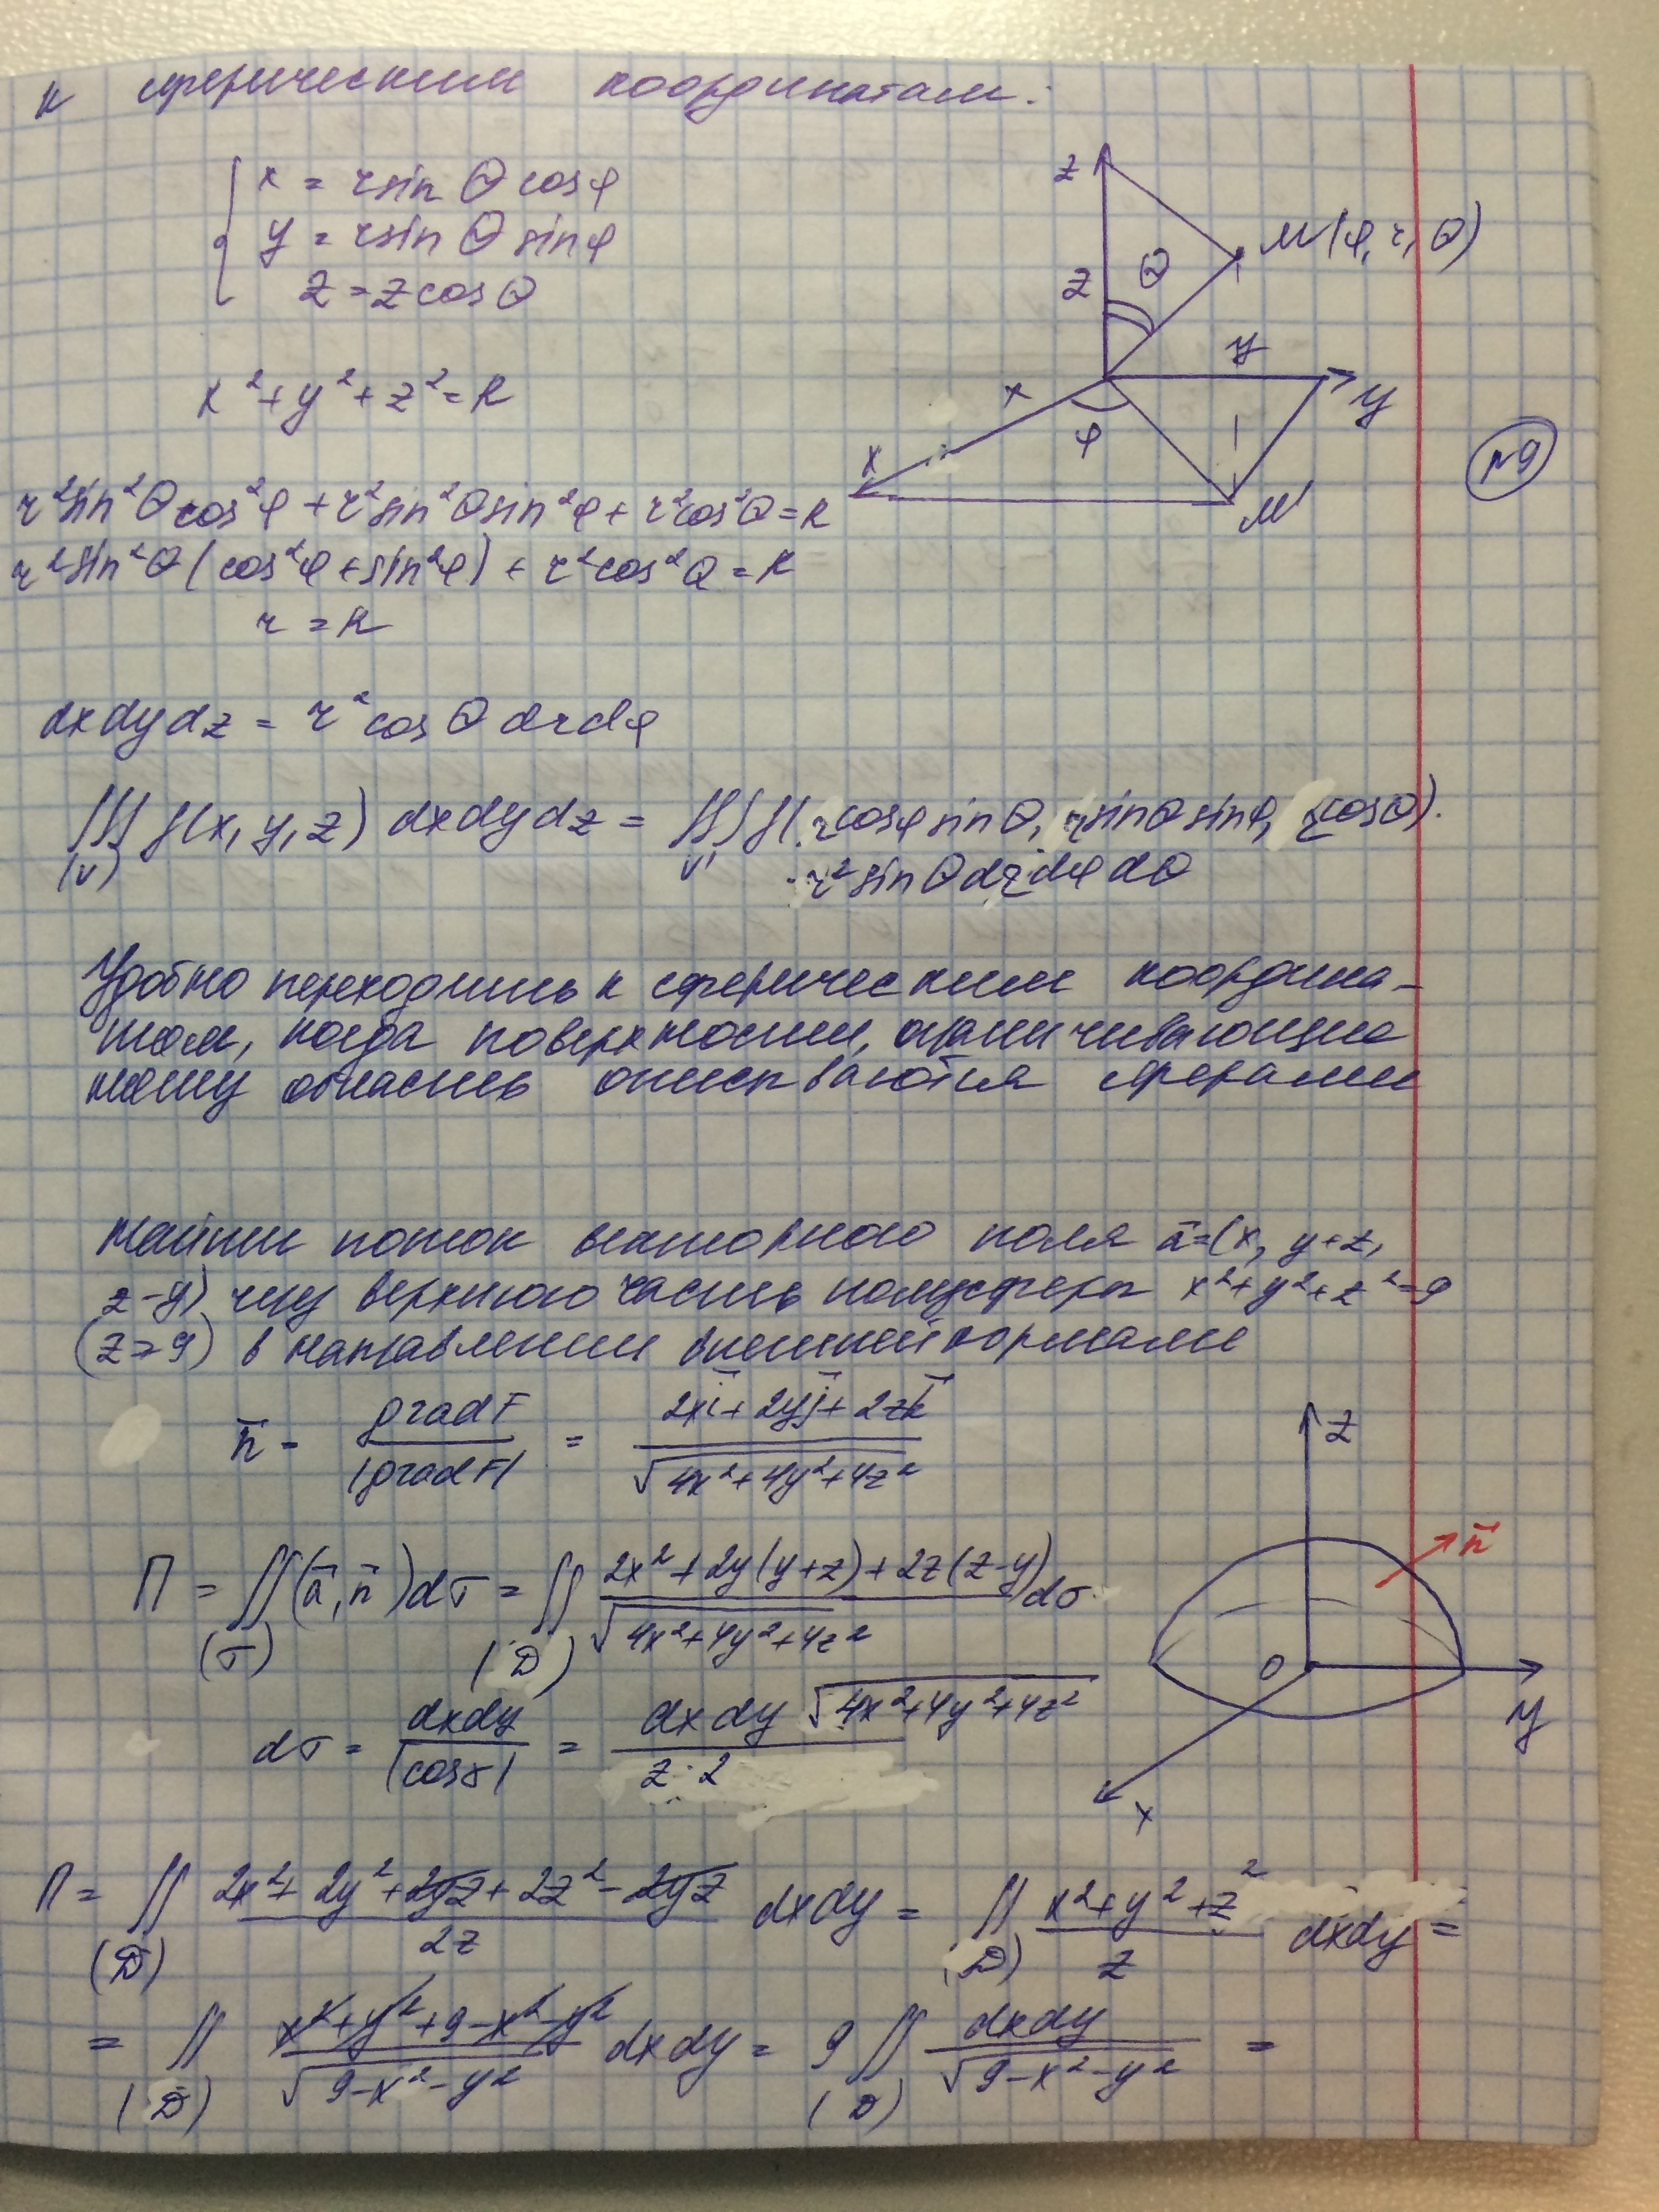 к сферическим координатам:
x = r sin θ cos φ
y = r sin θ sin φ
z = z cos θ
z
M(φ, r, θ)
z
θ
y
x
y
φ
x
M'
x² + y² + z² = R
№9
r² sin² θ cos² φ + r² sin² θ sin² φ + r² cos² θ = R
r² sin² θ (cos² φ + sin² φ) + r² cos² θ = R
r = R
dxdydz = r² cos θ dr dφ
∭(V) f(x, y, z) dxdydz = ∭V' f(r cos φ sin θ, r sin θ sin φ, r cos θ)·
· r² sin θ dr dφ dθ
Удобно переходить к сферическим координа-
там, когда поверхности, ограничивающие
нашу область описываются сферами
Найти поток векторного поля ā=(x, y+z,
z-y) чегу верхнюю часть полусферы x²+y²+z²=9
(z≥9) в направлении внешней нормали
n̄ - grad F / |grad F| = (2xī + 2yj̄ + 2zk̄) / √(4x²+4y²+4z²)
z
n̄
П = ∬(σ) (ā, n̄) dσ = ∬(D) (2x² + 2y(y+z) + 2z(z-y)) / √(4x²+4y²+4z²) dσ
0
y
x
dσ = dxdy / |cos γ| = dxdy √(4x²+4y²+4z²) / z·2
П = ∬(D) (2x² + 2y² + 2yz + 2z² - 2yz) / 2z dxdy = ∬(D) (x² + y² + z²) / z dxdy =
= ∬(D) (x² + y² + 9 - x² - y²) / √(9-x²-y²) dxdy = 9 ∬(D) dxdy / √(9-x²-y²) =